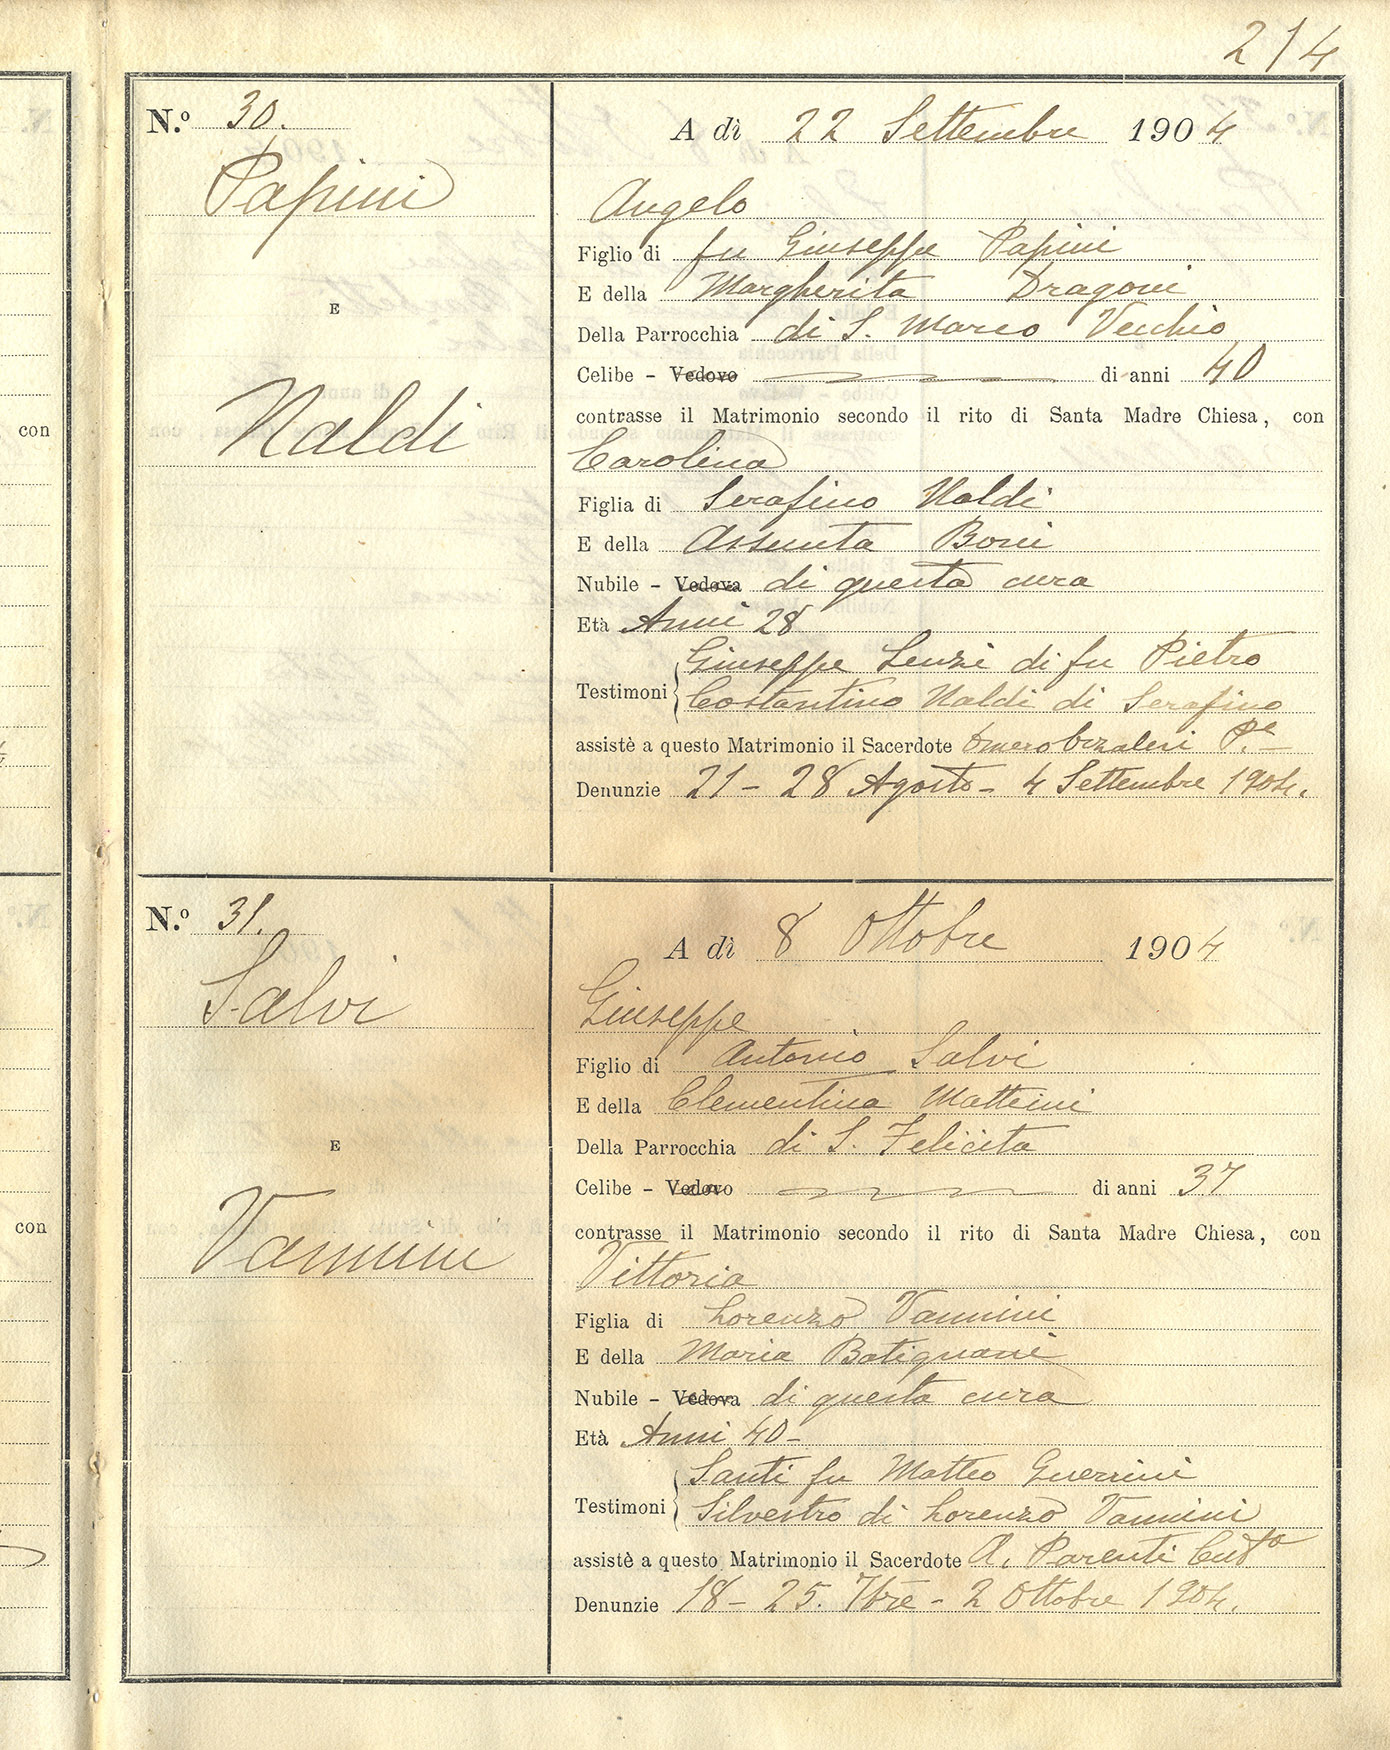 214
N.º 30.
Papini
E
Naldi
A dì 22 Settembre 1904
Angelo
Figlio di fu Giuseppe Papini
E della Margherita Dragoni
Della Parrocchia di S. Marco Vecchio
Celibe - Vedovo di anni 40
contrasse il Matrimonio secondo il rito di Santa Madre Chiesa, con
Carolina
Figlia di Serafino Naldi
E della Assunta Boni
Nubile - Vedova di questa cura
Età Anni 28
Giuseppe Lenzi di fu Pietro
Testimoni
Costantino Naldi di Serafino
assistè a questo Matrimonio il Sacerdote
Denunzie 21 - 28 Agosto - 4 Settembre 1904.
con
N.º 31.
Salvi
E
Vannini
A dì 8 Ottobre 1904
Giuseppe
Figlio di Antonio Salvi
E della Clementina Matteini
Della Parrocchia di S. Felicita
Celibe - Vedovo di anni 37
contrasse il Matrimonio secondo il rito di Santa Madre Chiesa, con
Vittoria
Figlia di Lorenzo Vannini
E della Maria Batignani
Nubile - Vedova di questa cura
Età Anni 40 -
Santi fu Matteo Guerrini
Testimoni
Silvestro di Lorenzo Vannini
assistè a questo Matrimonio il Sacerdote A. Parenti
Denunzie 18 - 25. 7bre - 2 Ottobre 1904.
con